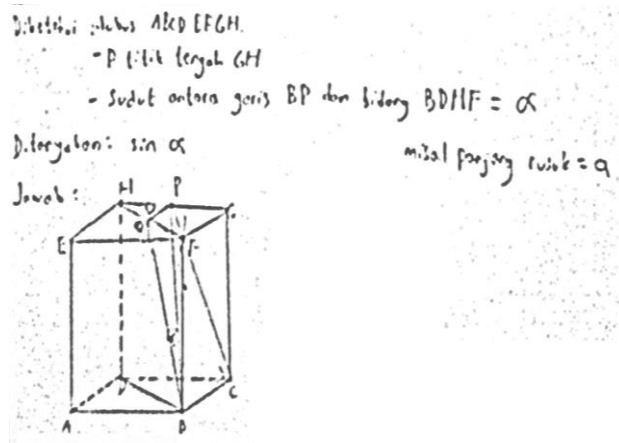 Diketahui kubus ABCD EFGH.
- P titik tengah GH
- Sudut antara garis BP dan bidang BDHF = α
Ditanyakan: sin α
misal panjang rusuk = a
Jawab:
H P
E F
D C
A B